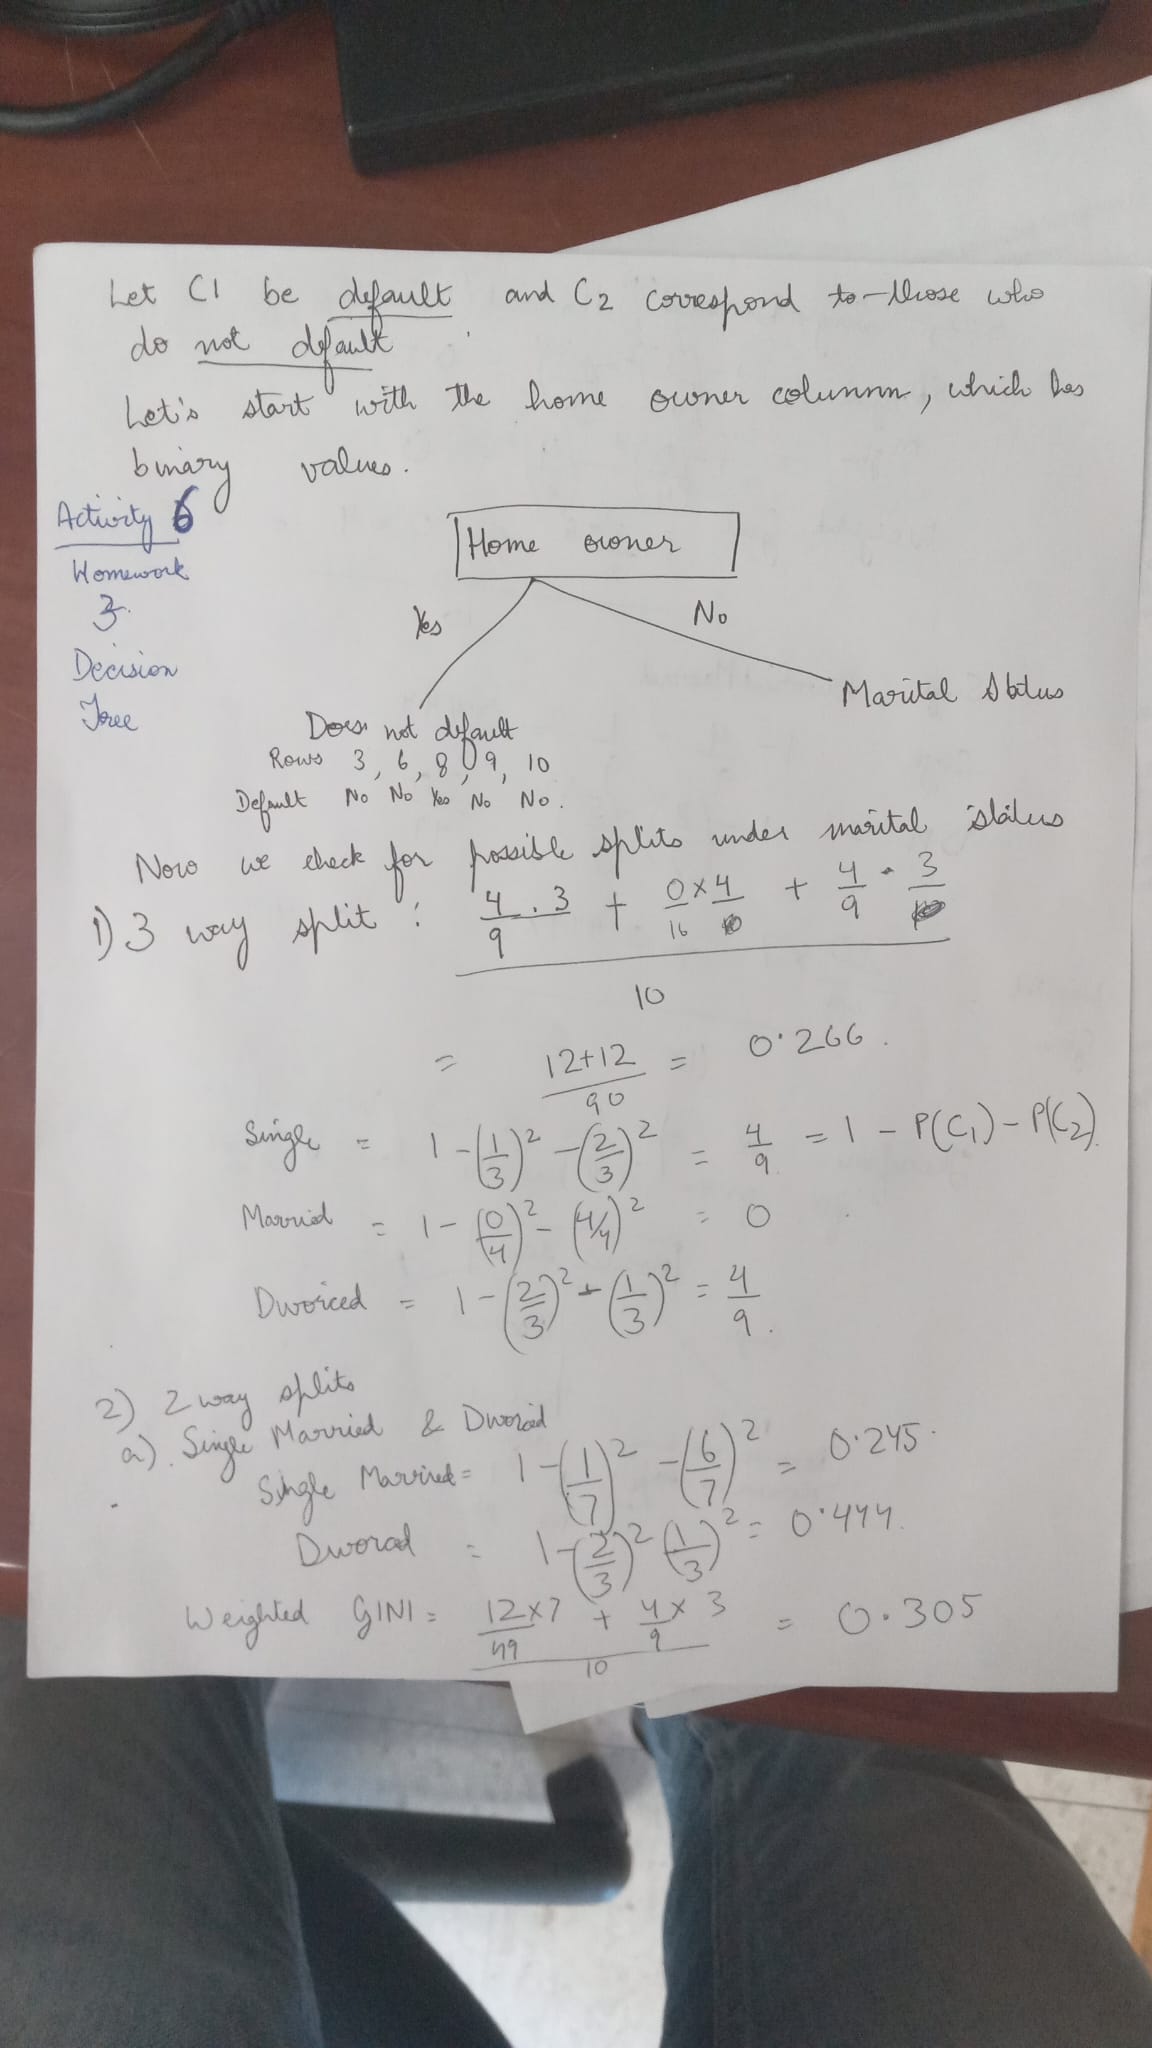 Let C1 be default and C2 correspond to those who
do not default
Let's start with the home owner column, which has
binary values.
Activity 6
Homework
3
Decision
Tree
Home owner
Yes
No
Marital Status
Does not default
Rows 3, 6, 8, 9, 10
Default No No Yes No No.
Now we check for possible splits under marital status
1) 3 way split : (4/9 . 3 + 0/16 × 4 + 4/9 . 3) / 10
= (12+12)/90 = 0.266.
Single = 1-(1/3)² -(2/3)² = 4/9 = 1 - P(C1) - P(C2)
Married = 1-(0/4)² - (4/4)² = 0
Divorced = 1-(2/3)² - (1/3)² = 4/9.
2) 2 way splits
a). Single Married & Divorced
Single Married = 1-(1/7)² -(6/7)² = 0.245.
Divorced = 1-(2/3)² (1/3)² = 0.444.
Weighted GINI = (12×7/49 + 4/9 × 3) / 10 = 0.305